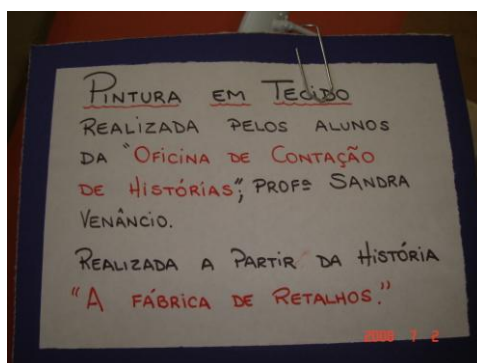 PINTURA EM TECIDO
REALIZADA PELOS ALUNOS
DA "OFICINA DE CONTAÇÃO
DE HISTÓRIAS"; PROFª SANDRA
VENÂNCIO.
REALIZADA A PARTIR DA HISTÓRIA
"A FÁBRICA DE RETALHOS."
2008 7 2